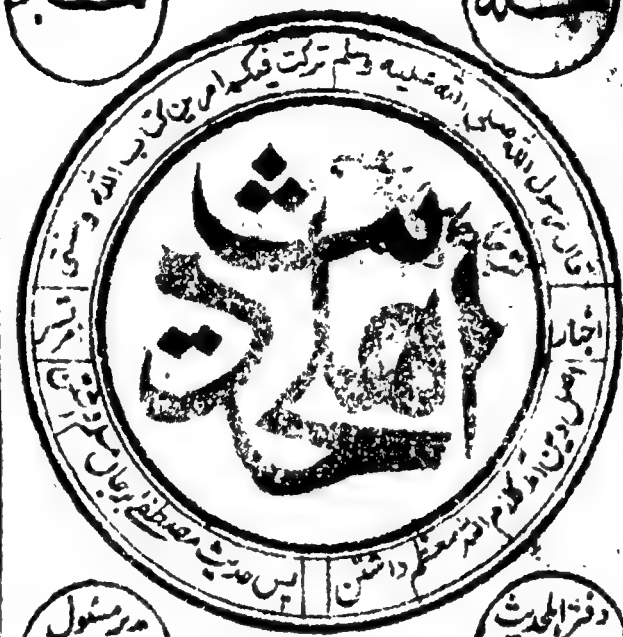 قال رسول الله صلى الله عليه وسلم تركت فيكم امرين كتاب الله و سنتى
اخبار
اهلحديث
امرتسر
اصل دین آمد کلام اللہ معظم داشتن
پس حدیث مصطفےٰ بر جان مسلم داشتن
مدیر مسئول
دفتر اہلحدیث